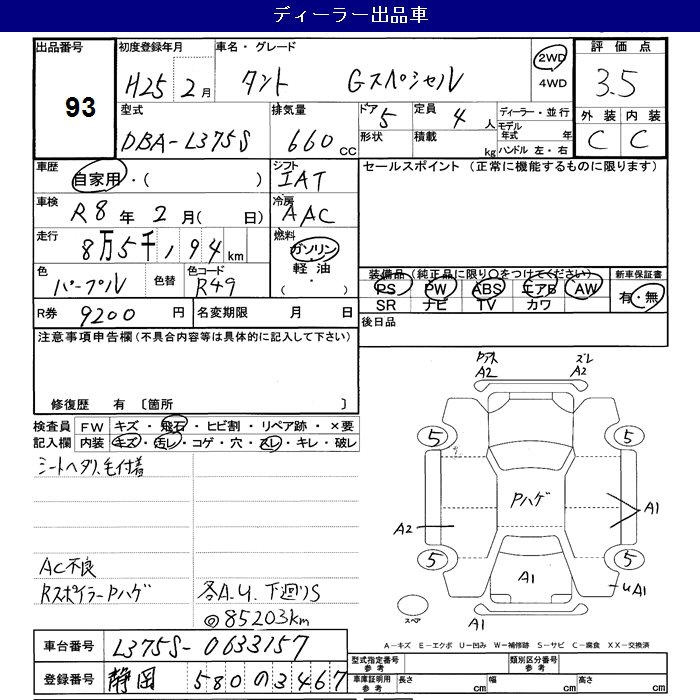 ディーラー出品車
出品番号 初度登録年月 車名・グレード 評価点
93
H25 2月 タント Gスペシャル 2WD 4WD 3.5
型式 排気量 ドア 5 定員 4人 ディーラー・並行 外装 内装
DBA-L375S 660cc 形状 積載 kg モデル年式 年 ハンドル 左・右 C C
車歴 自家用・( ) シフト IAT セールスポイント (正常に機能するものに限ります)
車検 R8年 2月( 日) 冷房 AAC
走行 8万5千,194km 燃料 ガソリン 軽油 ( ・ )
色 パープル 色替 色コード R49 装備品(純正品に限り○をつけてください) 新車保証書
PS PW ABS エアB AW 有・無
SR ナビ TV カワ
R券 9200円 名変期限 月 日 後日品
注意事項申告欄(不具合内容等は具体的に記入して下さい)
修復歴 有 〔箇所 〕
検査員記入欄 FW キズ・飛石・ヒビ割・リペア跡・×要
内装 キズ・汚レ・コゲ・穴・スレ・キレ・破レ
シートヘタリ,毛付着
AC不良
RスポイラーPハゲ 各A.U.下廻りS
@85203km
A2 ズレ A2
5 5
Pハゲ
A2 A1
5 5
A1 UA1
スペア A1
A-キズ E-エクボ U-凹み W-補修跡 S-サビ C-腐食 XX-交換済
車台番号 L375S-0633157
登録番号 静岡 580 の 3467
型式指定番号 参考 類別区分番号 参考
車庫証明用 参考 長さ cm 幅 cm 高さ cm